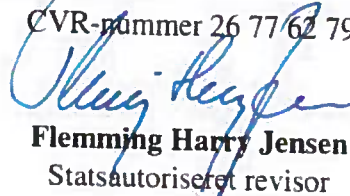 CVR-nummer 26 77 62 79
Flemming Harry Jensen
Statsautoriseret revisor